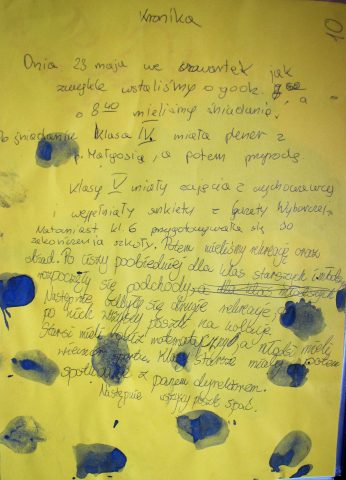 Kronika
10
Dnia 23 maja we czwartek jak
zwykle wstaliśmy o godz. 7 50, a
o 8 40 mieliśmy śniadanie.
Po śniadaniu klasa IV miała plener z
p. Małgosią, a potem przyrodę.
Klasy V miały zajęcia z wychowawcą
i wypełniały ankiety z Gazety Wyborczej.
Natomiast kl. 6 przygotowywała się do
zakończenia szkoły. Potem mieliśmy rekreację oraz
obiad. Po ciszy poobiedniej dla klas starszych i młodszych
rozpoczęły się podchody, a dla klas młodszych
Następnie odbyły się dłuższe rekreacje,
po nich wszyscy poszli na kolację.
Starsi mieli matematyczny, a młodsi mieli
wieczór Klasy starsze miały potem
spotkanie z panem dyrektorem.
Następnie wszyscy poszli spać.